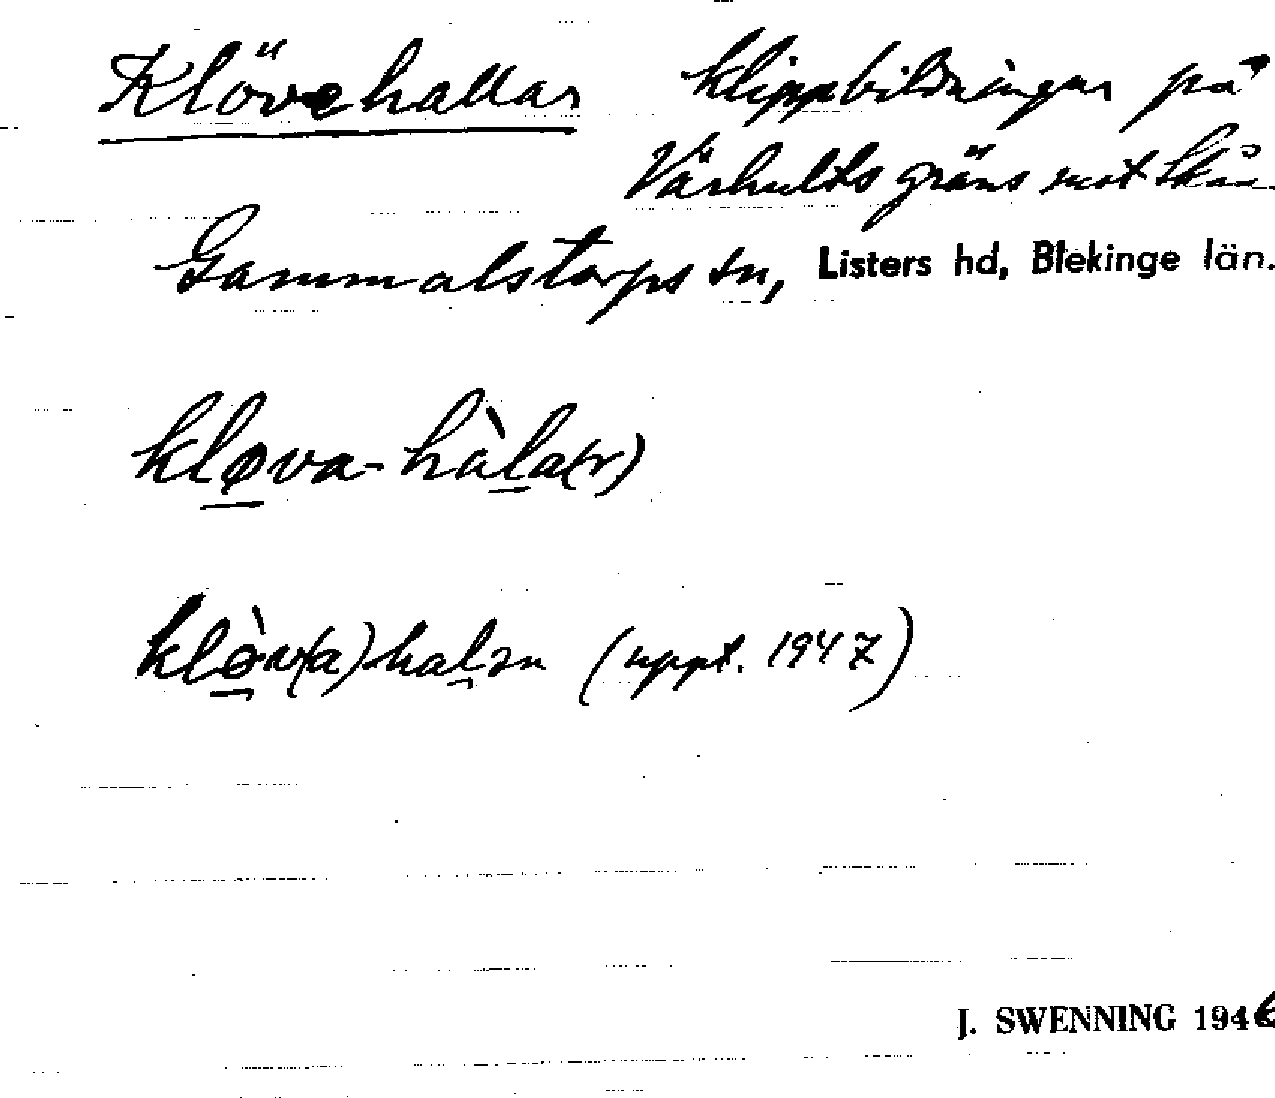 Klövehallar klippbildningar på
Vårhults gräns mot Skå
Gammalstorps sn, Listers hd, Blekinge län.
kløva-hàla(r)
klø̀v(a)halən (uppt. 1947)
J. SWENNING 1946